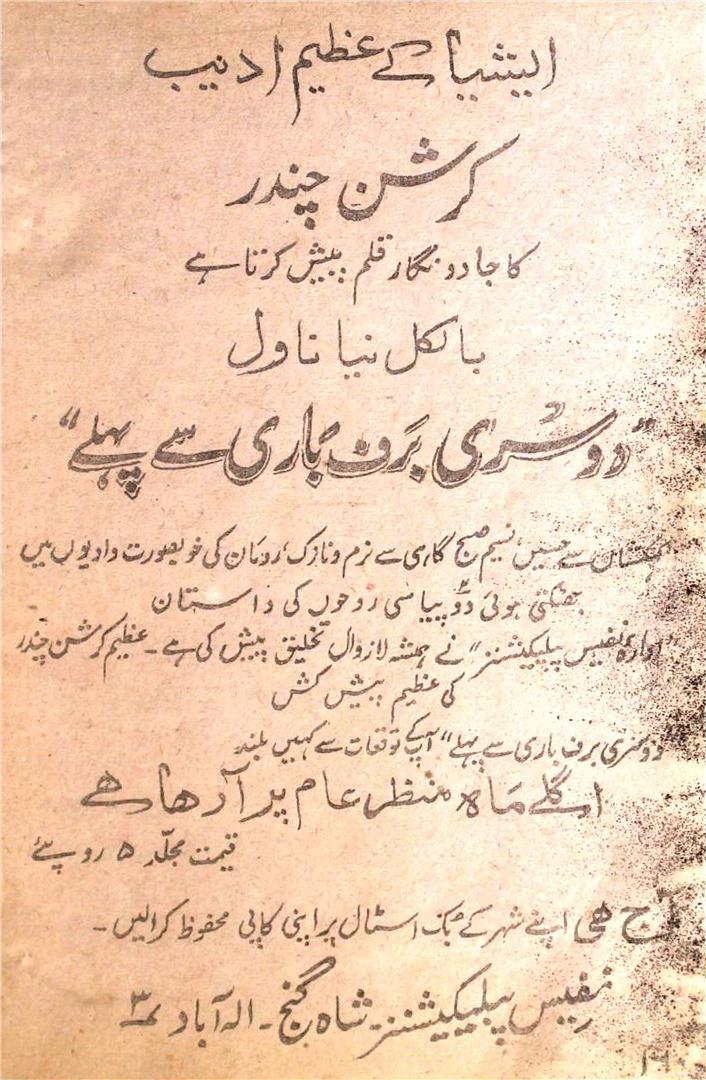 ایشیا کے عظیم ادیب
کرشن چندر
کا جادو نگار قلم پیش کرتا ہے
بالکل نیا ناول
"دوسری برف باری سے پہلے"
سے حسین نسیم صبح گاہی سے نرم و نازک رومان کی خوبصورت وادیوں میں
بھٹکتی ہوئی دو پیاسی روحوں کی داستان
"ادارہ نفیس پبلیکیشنز" نے ہمیشہ لازوال تخلیق پیش کی ہے۔ عظیم کرشن چندر
کی عظیم پیش کش
دوسری برف باری سے پہلے" آپ کے توقعات سے کہیں بلند
اگلے ماہ منظر عام پر آرھا ھے
قیمت مجلّد ۵ روپئے
آج ھی اپنے شہر کے بک اسٹال پر اپنی کاپی محفوظ کرالیں۔
نفیس پبلیکیشنز شاہ گنج۔ الہ آباد ۳